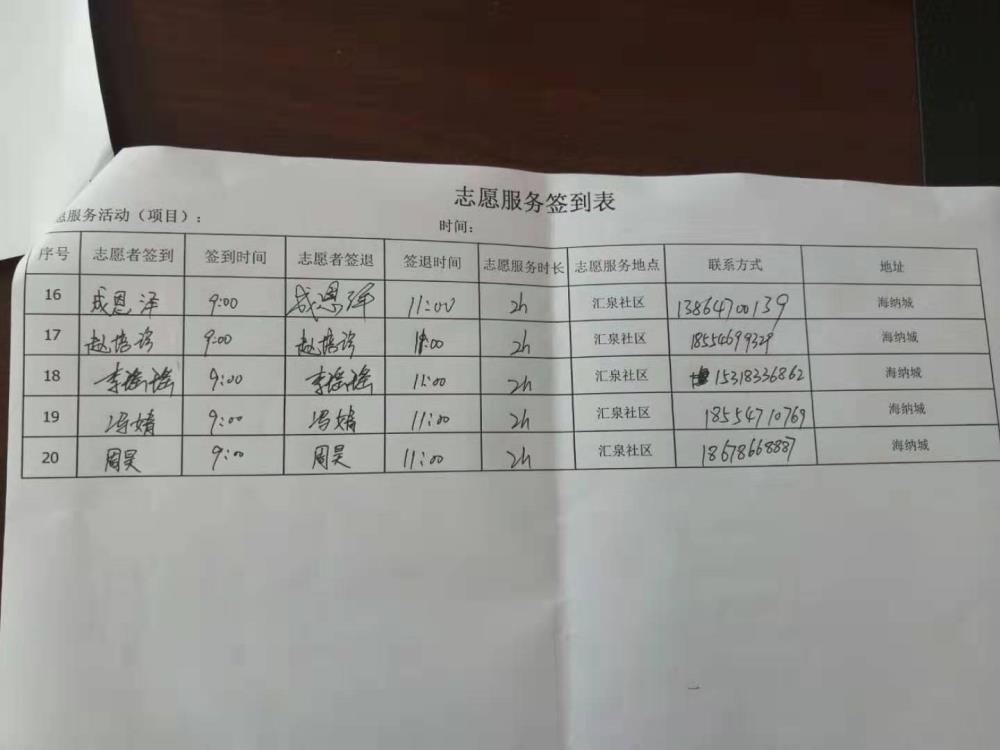 志愿服务签到表
愿服务活动（项目）： 时间：
序号 志愿者签到 签到时间 志愿者签退 签退时间 志愿服务时长 志愿服务地点 联系方式 地址
16 成恩泽 9:00 成恩泽 11:00 2h 汇泉社区 13864700139 海纳城
17 赵培 9:00 赵培 11:00 2h 汇泉社区 18554699329 海纳城
18 李瑶瑶 9:00 李瑶瑶 11:00 2h 汇泉社区 15318336862 海纳城
19 冯婧 9:00 冯婧 11:00 2h 汇泉社区 18554710769 海纳城
20 周昊 9:00 周昊 11:00 2h 汇泉社区 18678668887 海纳城